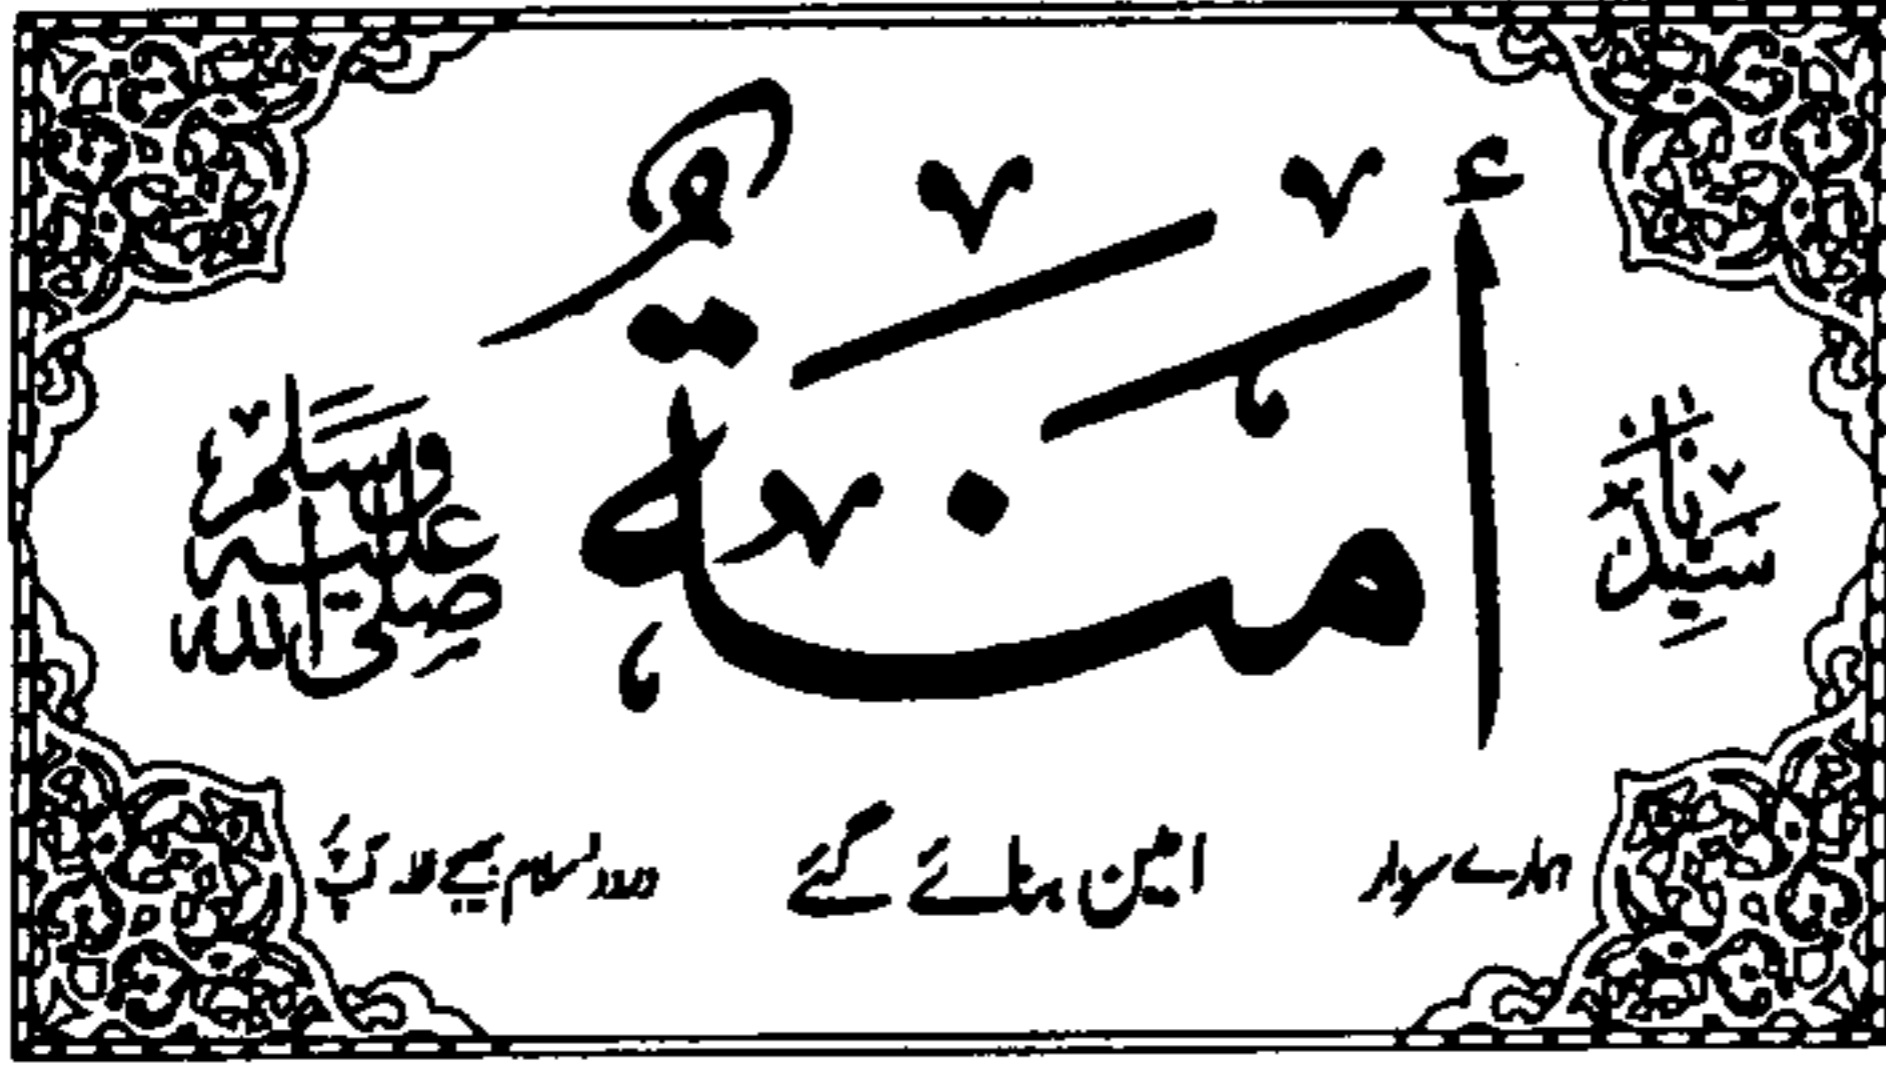 سَيِّدُنَا أَمَنَةٌ صَلَّى اللهُ عَلَيْهِ وَسَلَّمَ
ہمارے سردار امین بنائے گئے درود و سلام بھیجے اللہ آپ پر